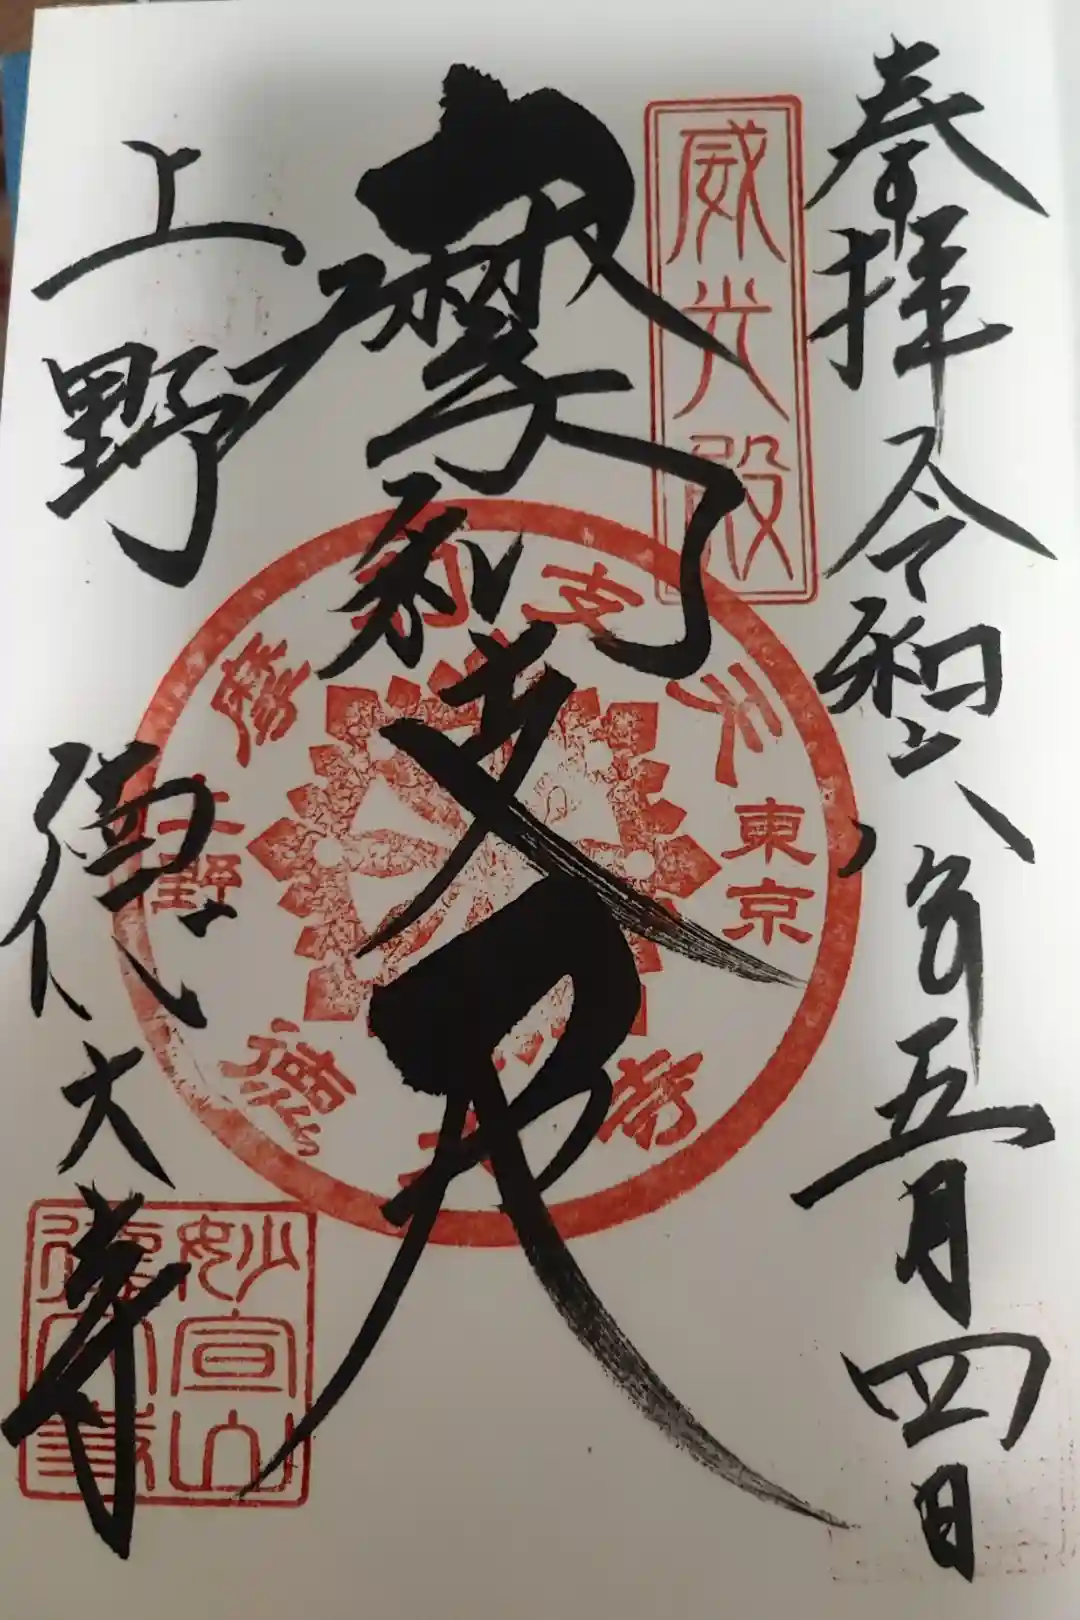 奉拝 令和六年五月四日
威光殿
摩利支天
上野 徳大寺
摩利支天
東京
上野
徳大寺
妙宣山
徳大寺